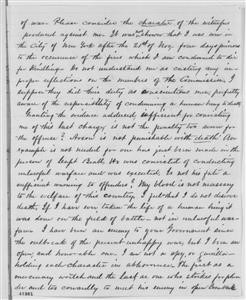 of war. Please consider the character of the witnesses
produced against me. It was shown that I was even in
the City of New York after the 21st of Nov. four days previous
to the occurrence of the fires which I am condemned to die
for kindling. Do not understand me as casting any im-
proper reflections on the members of the Commission, I
suppose they did their duty as conscientious men properly
aware of the responsibility of condemning a human being to death
Granting the evidence adduced, sufficient for convicting
me of this last charge is not the penalty too severe for
the offense? Arson is not punishable with death! An
example is not needed for one has just been made in the
person of Capt Beall. He was convicted of conducting
unlawful warfare and was executed. Is not his fate a
sufficient warning to offenders? My blood is not necessary
to the welfare of this country. I feel that I do not deserve
death. If I have ever taken the life of a human being it
was done on the field of battle - not in unlawful war-
fare. I have been an enemy to your Government since
the outbreak of the present unhappy war but I have been an
open and honorable one. I am not a spy, or guerilla -
holding each character in abhorrence. The first as a
mercenary wretch and the last as one who strikes for plun-
der and too cowardly to meet his enemy in open
41981